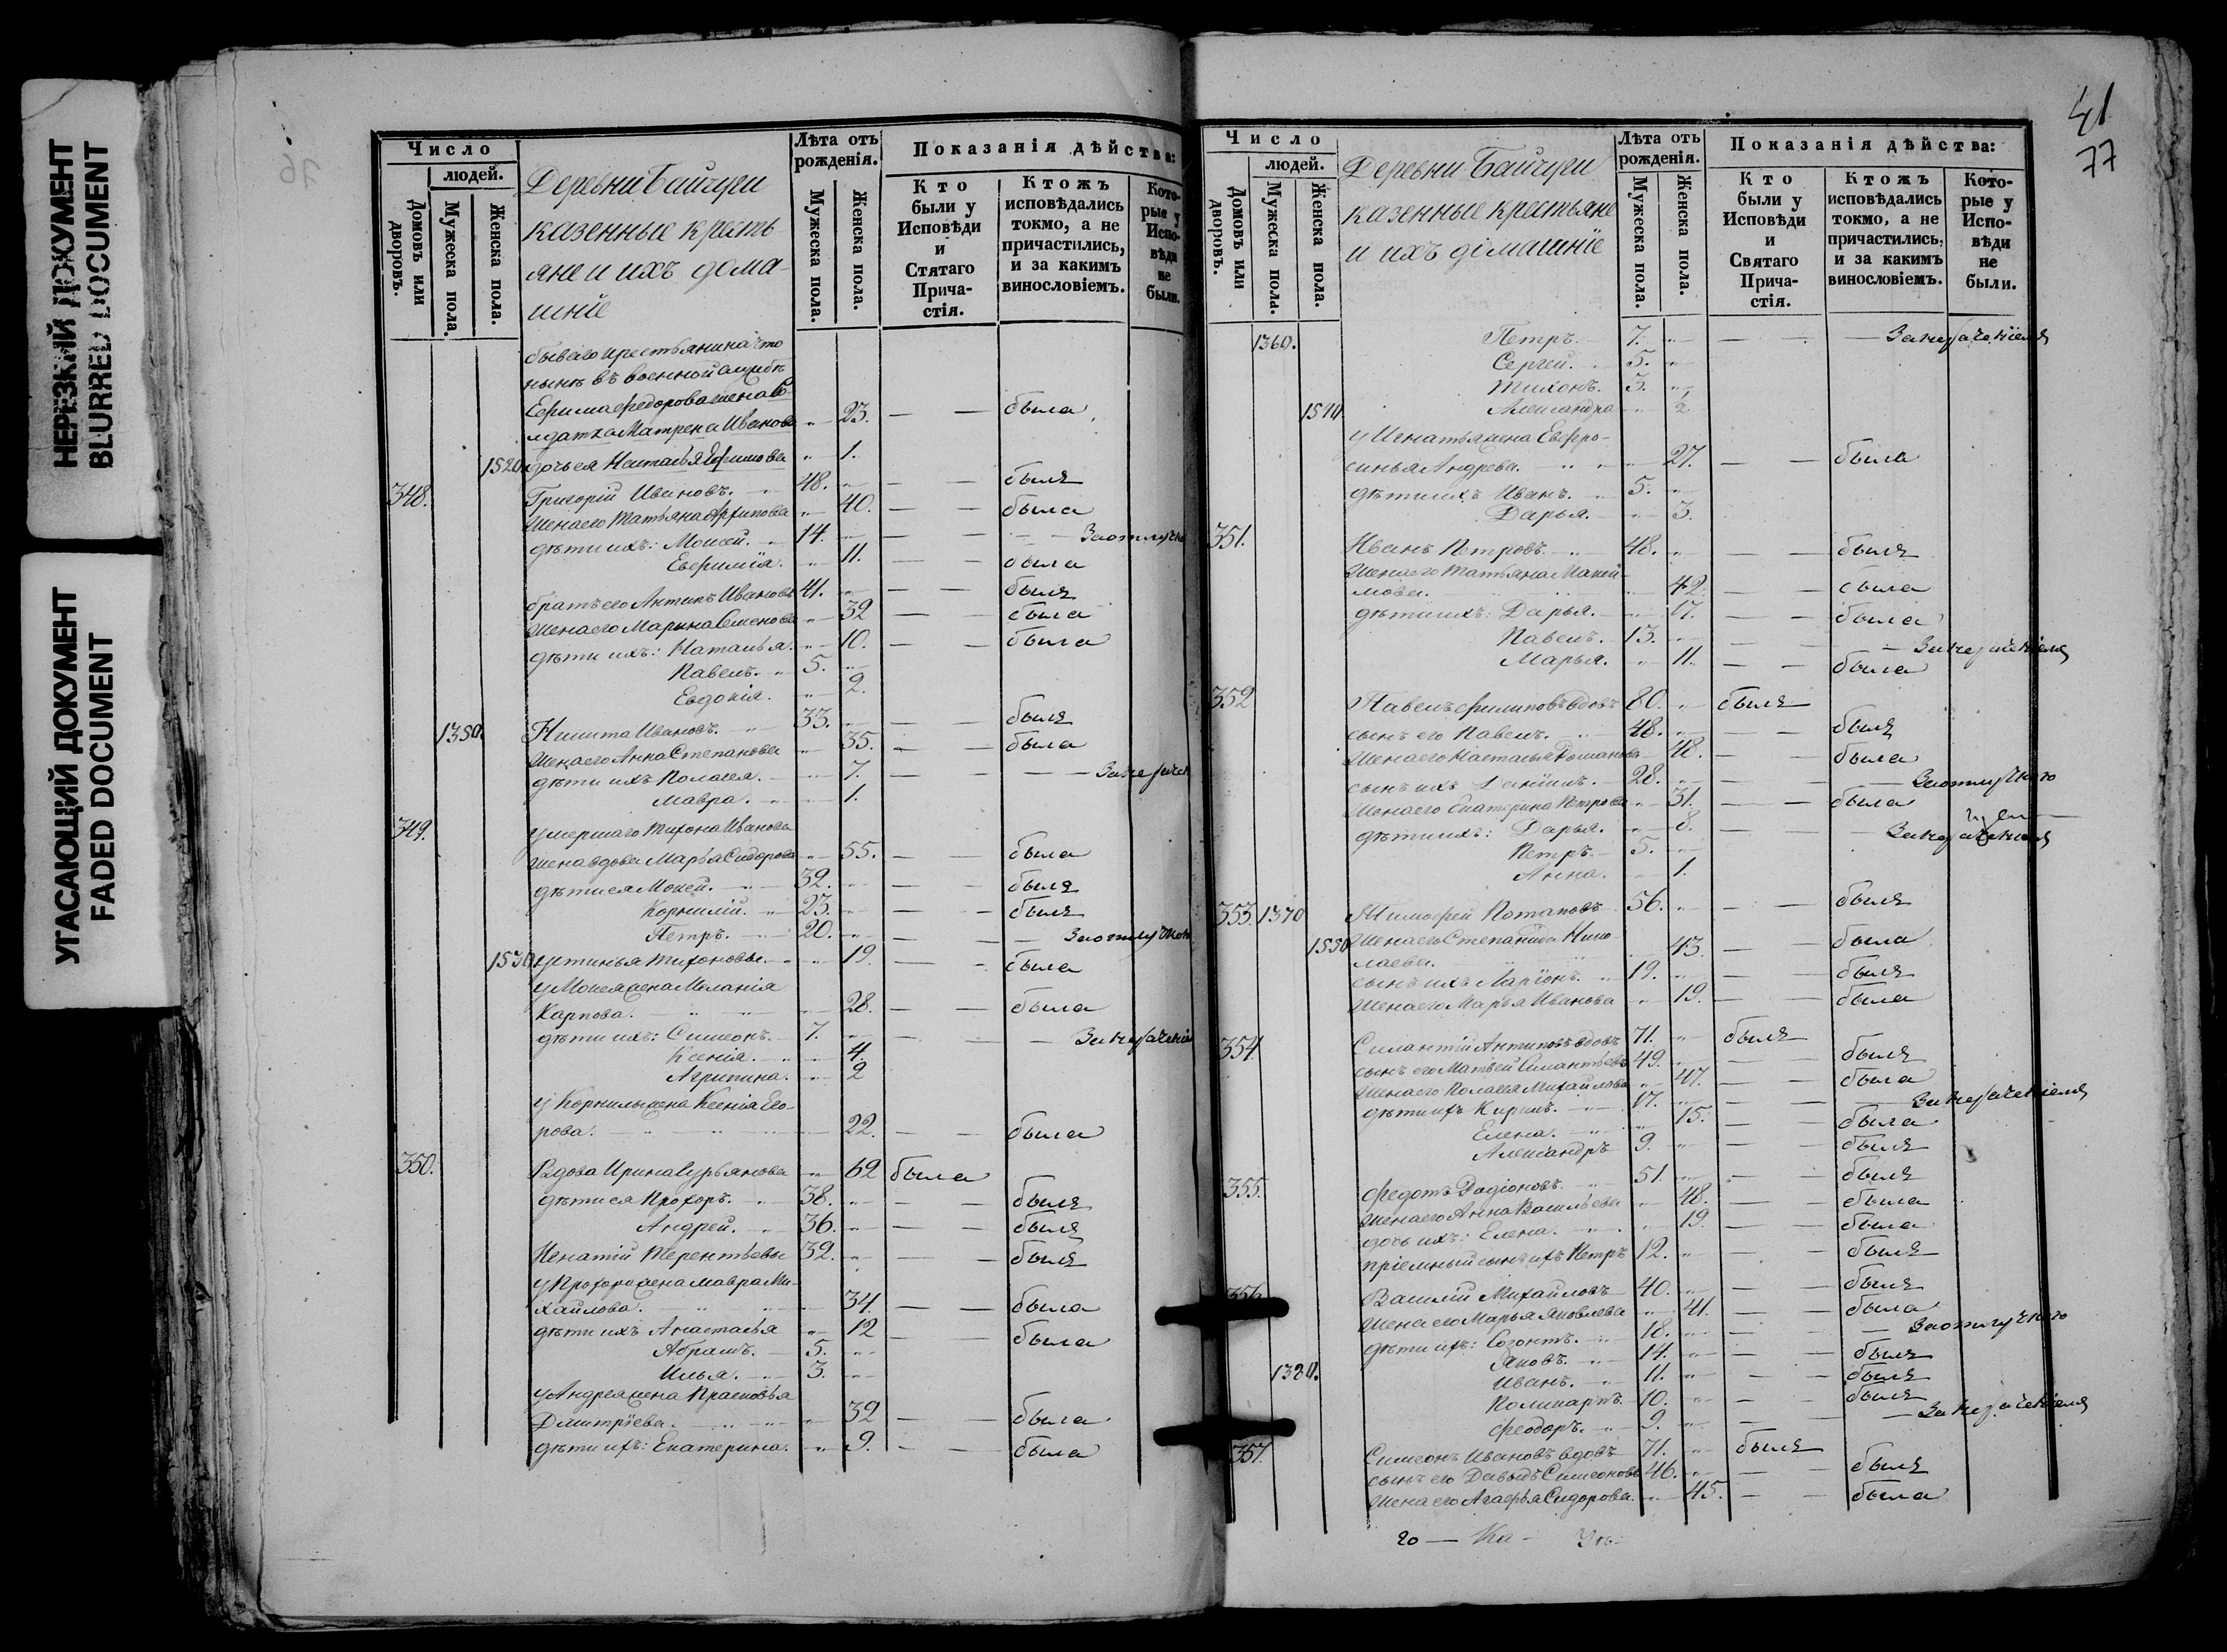 НЕРЕЗКИЙ ДОКУМЕНТ
BLURRED DOCUMENT
УГАСАЮЩИЙ ДОКУМЕНТ
FADED DOCUMENT
Число
людей.
Домовъ или дворовъ.
Мужеска пола.
Женска пола.
Деревни Байчуги
казенные кресть
яне и ихъ дома-
шнiе
Лѣта отъ рожденія.
Мужеска пола.
Женска пола.
Показанія дѣйства:
Кто были у Исповѣди и Стятаго Прича- стія.
Ктожъ исповѣдались токмо, а не причастились, и за какимъ винословіемъ.
Кото- рые у Испо- вѣди не были.
бывшаго крестьянина что
нынѣ въ военной службѣ
Ефима Федорова жена со-
лдатка Матрена Иванова „ 23. — — была
1520 дочь ея Наталья Ефимова „ 1.
348. Григорій Ивановъ. 48. „ — — былъ
жена его Татьяна Архипова „ 40. — — была
дѣти ихъ: Моисей. 14. „ — — За отлучко
Евфимія. „ 11. — — была
братъ его Антипъ Ивановъ 41. „ — — былъ
жена его Марина Семенова „ 32 — — была
дѣти ихъ: Наталья. „ 10. — — была
Павелъ. 5. „
Евдокія. „ 2.
1350. Никита Ивановъ. 33. „ — — былъ
жена его Анна Степанова „ 35. — — была
дѣти ихъ Полагея. „ 7. — — За нерачен
Мавра. „ 1.
349. умершаго Тихона Иванова
жена вдова Марья Сидорова „ 55. — — была
дѣти ея Моисей. 32. „ — — былъ
Корнилій. 23. „ — — былъ
Петръ. 20. „ — — За отлучкою
1530 Устинья Тихоновы. „ 19. — — была
у Моисея жена Меланія
Карпова. „ 28. — — была
дѣти ихъ: Симеонъ. 7. „ — — За нераченіе
Ксенія. „ 4.
Агрипина. „ 2
у Корнилья жена Ксенія Его-
рова. „ 22. — — была
350. Вдова Ирина Гурьянова „ 62 была
дѣти ея Прохоръ. 38. „ — — былъ
Андрей. 36. „ — — былъ
Игнатій Терентьевы 32. „ — — былъ
у Прохора жена Мавра Ми-
хайлова. „ 34. — — была
дѣти ихъ Анастасья „ 12 — — была
Абрамъ. 5. „
Илья. 3. „
у Андрея жена Прасковья
Дмитріева. „ 32 — — была
дѣти ихъ: Екатерина. „ 9. — — была
41
77
Число
людей.
Домовъ или дворовъ.
Мужеска пола.
Женска пола.
Деревни Байчуги
казенные крестьяне
и ихъ домашнiе
Лѣта отъ рожденія.
Мужеска пола.
Женска пола.
Показанія дѣйства:
Кто были у Исповѣди и Святаго Прича- стія.
Ктожъ исповѣдались токмо, а не причастились, и за какимъ винословіемъ.
Кото- рые у Испо- вѣди не были.
1360. Петръ. 7. „ — — За нераченіемъ
Сергей. 5. „
Тихонъ. 3. „
1540 Александра „ 2
у Игнатья жена Евфро-
синья Андрева. „ 27. — — была
дѣти ихъ Иванъ. 5. „
Дарья. „ 3.
351. Иванъ Петровъ. 48. „ — — былъ
жена его Татьяна Максй-
мова. „ 42. — — была
дѣти ихъ: Дарья. „ 17. — — была
Павелъ. 13. „ — — За нераченіемъ
Марья. „ 11. — — была
352 Павелъ Филиповъ вдовъ 80. „ былъ
сынъ его Павелъ. 48. „ — — былъ
жена его Настасья Романова „ 48. — — была
сынъ ихъ Данiилъ. 28. „ — — За отлучкою
жена его Екатерина Петрова „ 31. — — была
дѣти ихъ: Дарья. „ 8. — — За нераченіемъ
Петръ. 5. „
Анна. „ 1.
353. 1370 Тимофей Потаповъ 56. „ — — былъ
1550 жена его Степанида Нико-
лаева. „ 43. — — была
сынъ ихъ Ларiонъ. 19. „ — — былъ
жена его Марья Иванова „ 19. — — была
354 Силантій Антиповъ вдовъ 71. „ былъ
сынъ его Матвей Силантьевъ 49. „ — — былъ
жена его Полагея Михайлова „ 47. — — была
дѣти ихъ Кирилъ. 17. „ — — За нераченіемъ
Елена. „ 15. — — была
Александръ 9. „ — — былъ
355. Федотъ Родіоновъ. 51. „ — — былъ
жена его Анна Васильева „ 48. — — была
дочь ихъ: Елена. „ 19. — — была
пріемный сынъ ихъ Петръ 12. „ — — былъ
356 Василій Михайловъ 40. „ — — былъ
жена его Марья Яковлева „ 41. — — была
дѣти ихъ: Созонтъ. 18. „ — — За отлучкою
Яковъ. 14. „ — — былъ
1380. Иванъ. 11. „ — — былъ
Поликарпъ. 10. „ — — былъ
Феодоръ. 9. „ — — За нераченіемъ
357. Симеонъ Ивановъ вдовъ 71. „ былъ
сынъ его Давыдъ Симеоновъ 46. „ — — былъ
жена его Агафья Сидорова. „ 45. — — была
20 —